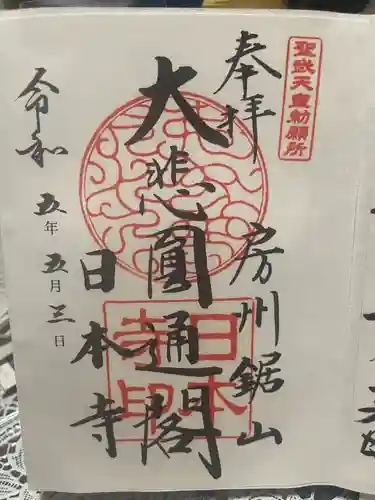 聖武天皇勅願所
奉拝
房州鋸山
大悲圓通閣
日本寺
日本寺印
令和五年五月三日